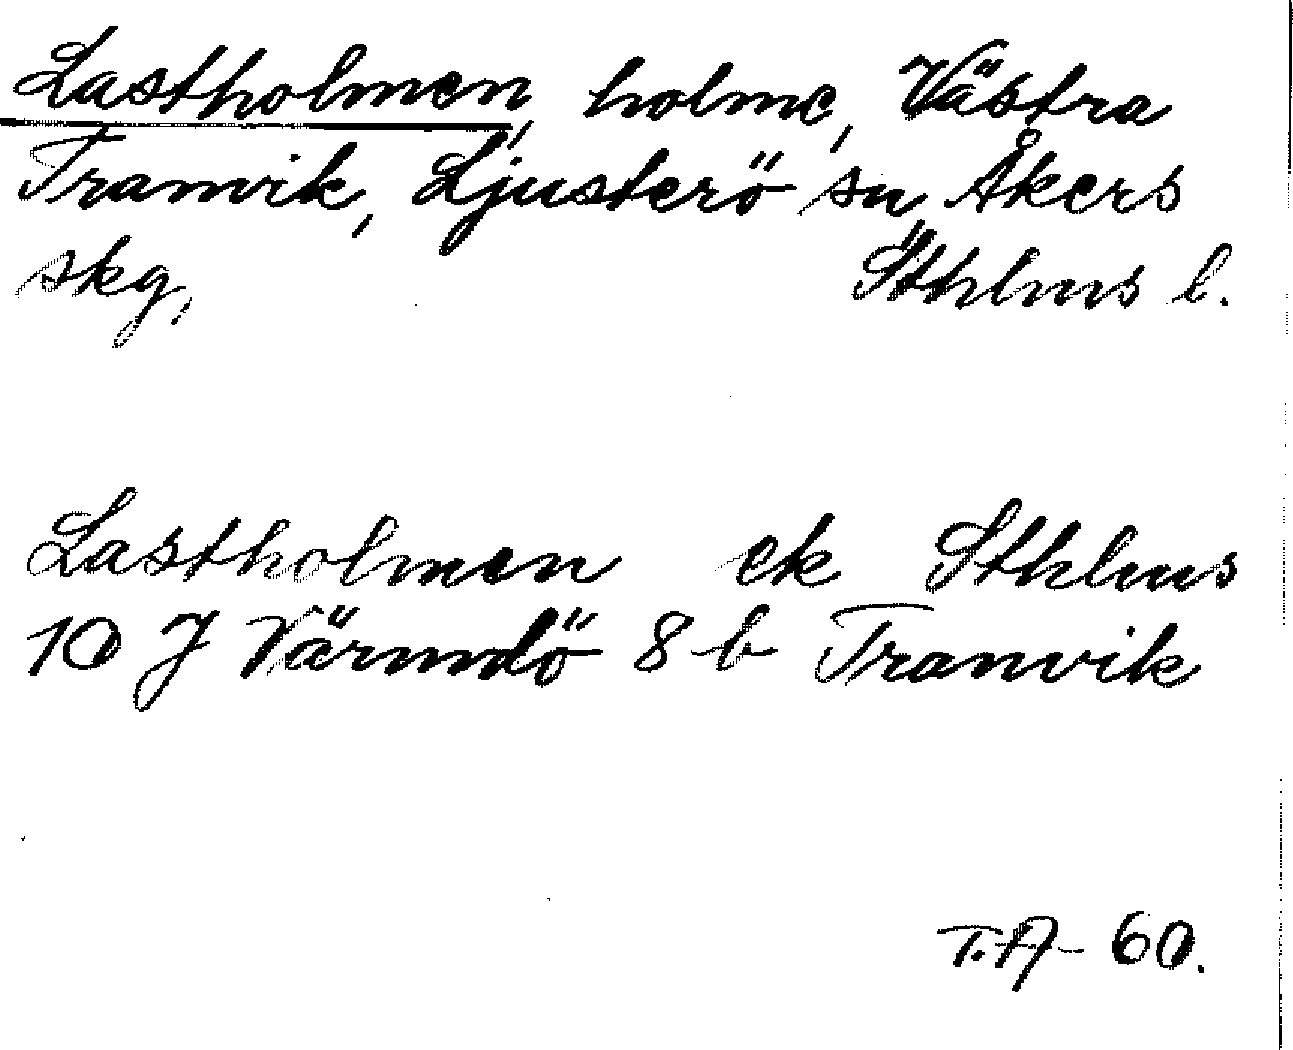 Lastholmen, holme, Västra
Tranvik, Ljusterö sn, Åkers
skg, Sthlms l.
Lastholmen ek Sthlms
10 J Värmdö 8 b Tranvik
T.A- 60.